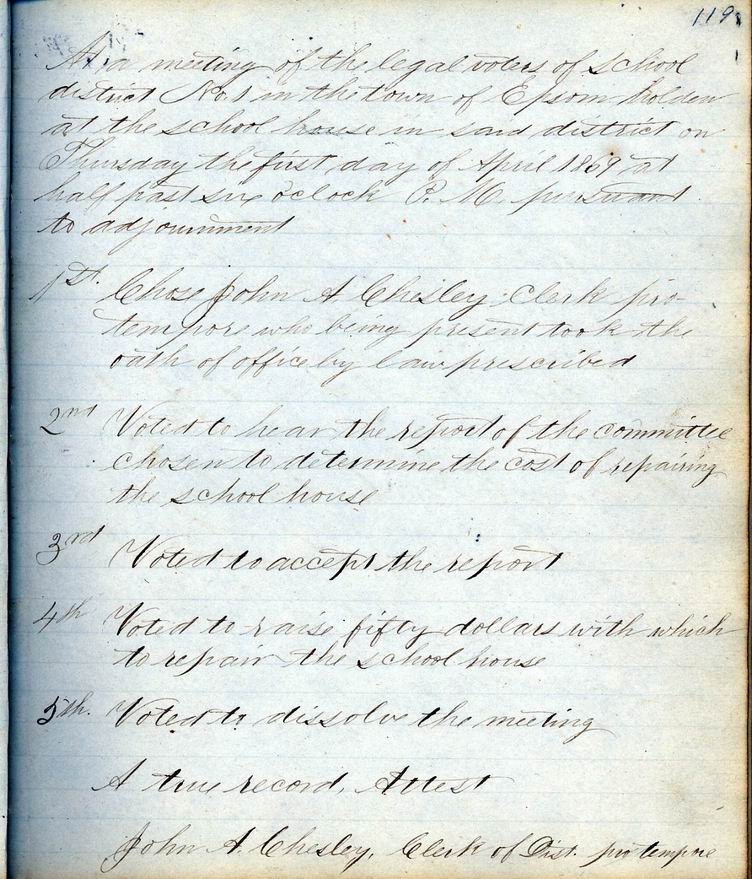 119
At a meeting of the legal voters of School
district No. 1 in the town of Epsom holden
at the school house in said district on
Thursday the first day of April 1869 at
half past six o'clock P. M. pursuant
to adjournment
1st. Chose John A Chesley Clerk pro-
tempore who being present took the
oath of office by law prescribed
2nd Voted to hear the report of the committee
chosen to determine the cost of repairing
the school house
3rd Voted to accept the report
4th Voted to raise fifty dollars with which
to repair the school house
5th. Voted to dissolve the meeting
A true record, Attest
John A. Chesley, Clerk of Dist. pro tempore